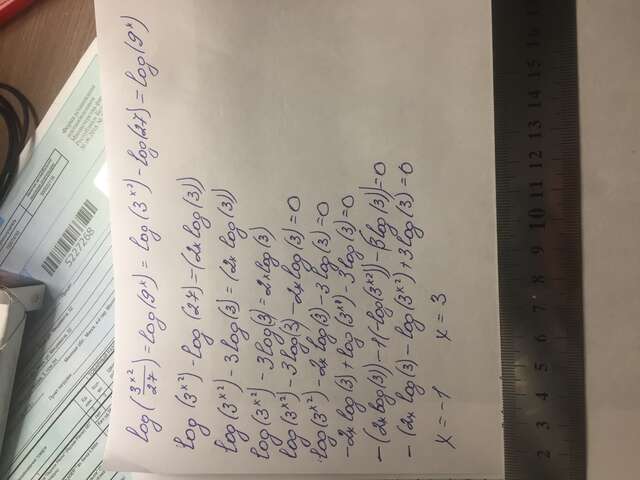 5227268
log(3^x²/27) = log(9^x) = log(3^x²) - log(27) = log(9^x)
log(3^x²) - log(27) = (2x log(3))
log(3^x²) - 3log(3) = (2x log(3))
log(3^x²) - 3log(3) = 2x log(3)
log(3^x²) - 3log(3) - 2x log(3) = 0
log(3^x²) - 2x log(3) - 3log(3) = 0
-2x log(3) + log(3^x²) - 3log(3) = 0
-(2x log(3)) - 1(-log(3^x²)) - (3log(3)) = 0
-(2x log(3) - log(3^x²) + 3log(3) = 0
x = -1 x = 3
2 3 4 5 6 7 8 9 10 11 12 13 14 15 16